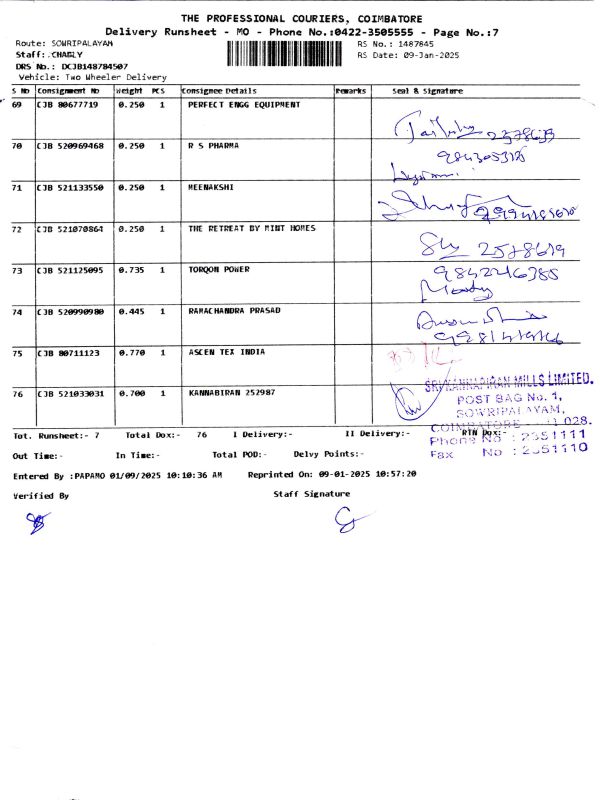 THE PROFESSIONAL COURIERS, COIMBATORE
Delivery Runsheet - MO - Phone No.:0422-3505555 - Page No.:7
Route: SOWRIPALAYAM RS No.: 1487845
Staff:.CHAGLY RS Date: 09-Jan-2025
DRS No.: DCJB148784507
Vehicle: Two Wheeler Delivery
S No Consignment No Weight PCS Consignee Details Remarks Seal & Signature
69 CJB 80677719 0.250 1 PERFECT ENGG EQUIPMENT
2578639
70 CJB 520969468 0.250 1 R S PHARMA
71 CJB 521133550 0.250 1 MEENAKSHI
72 CJB 521070864 0.250 1 THE RETREAT BY MINT HOMES
2578619
73 CJB 521125095 0.735 1 TORQON POWER
9842246385
74 CJB 520990980 0.445 1 RAMACHANDRA PRASAD
75 CJB 80711123 0.770 1 ASCEN TEX INDIA
76 CJB 521033031 0.700 1 KANNABIRAN 252987
SRI KANNAPIRAN MILLS LIMITED.
POST BAG No. 1,
SOWRIPALAYAM,
COIMBATORE 028.
Phone No : 2351111
Fax No : 2351110
Tot. Runsheet:- 7 Total Dox:- 76 I Delivery:- II Delivery:- RTN Dox:-
Out Time:- In Time:- Total POD:- Delvy Points:-
Entered By :PAPAMO 01/09/2025 10:10:36 AM Reprinted On: 09-01-2025 10:57:20
Verified By Staff Signature